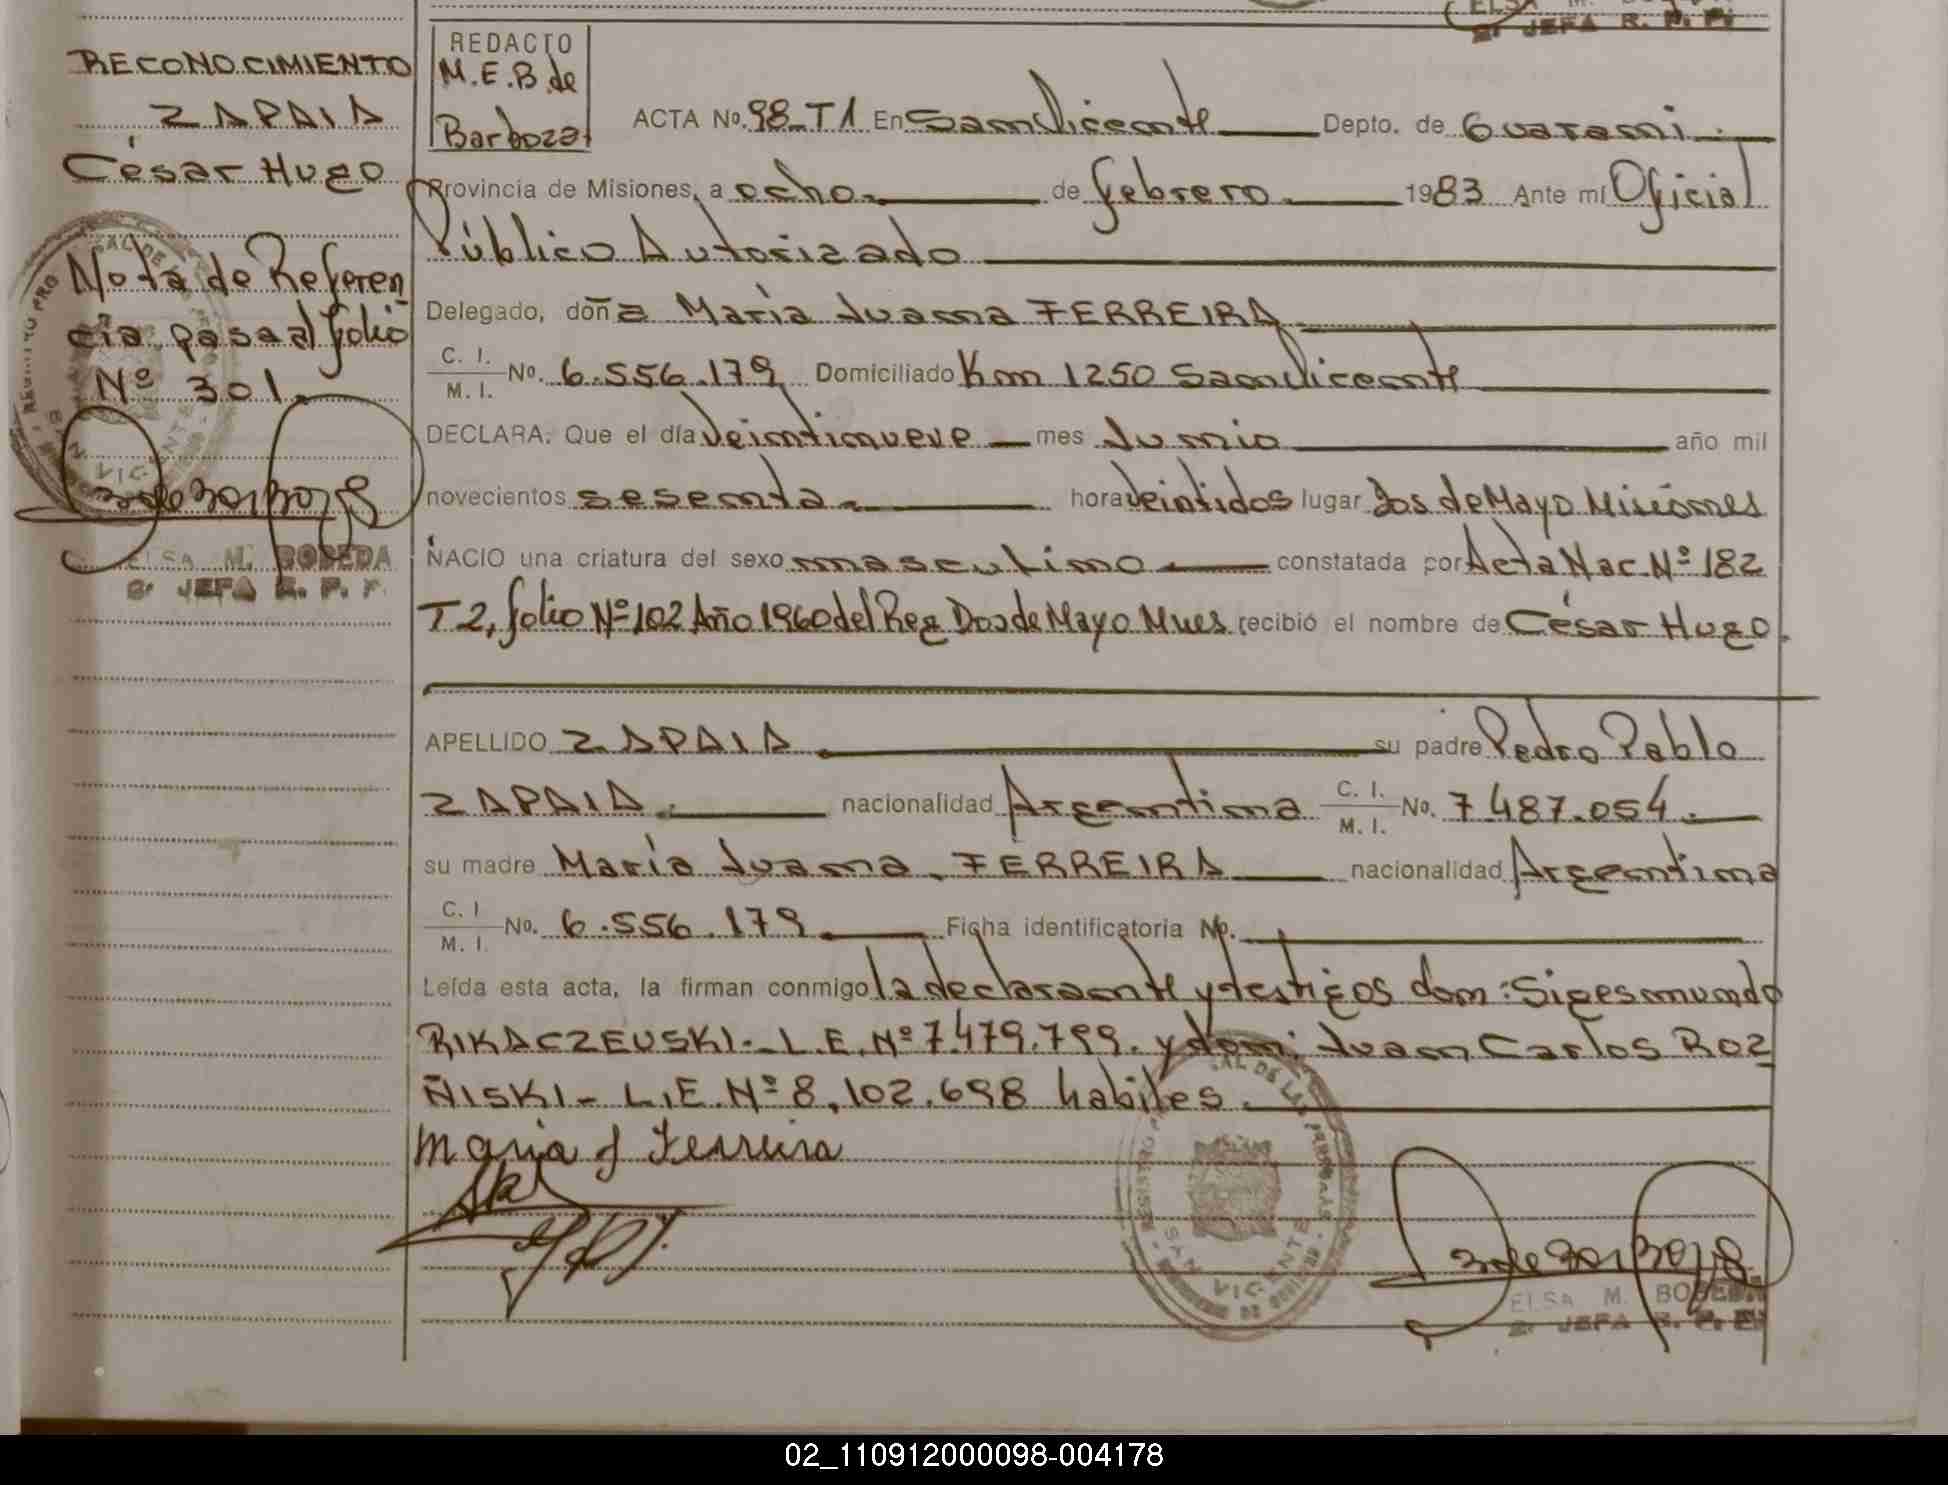 RECONOCIMIENTO
ZAPAIA
César Hugo
Nota de Referen
cia pasa al folio
Nº 301.
ELSA M. BOBEDA
JEFA R. P. P.
REDACTO
M.E.B. de
Barboza
ACTA No. 98-T1 En San Vicente Depto. de Guarani.
Provincia de Misiones, a ocho. de febrero 1983 Ante mí Oficial
Público Autorizado
Delegado, doña María Juana FERREIRA
C. I.
M. I. No. 6.556.179 Domiciliado Km 1250 San Vicente
DECLARA: Que el día veintinueve mes Junio año mil
novecientos sesenta. hora veintidos lugar Dos de Mayo Misiones
NACIO una criatura del sexo masculino constatada por Acta Nac. Nº 182
T2, folio Nº 102 Año 1960 del Reg Dos de Mayo Mnes recibió el nombre de César Hugo.
APELLIDO ZAPAIA su padre Pedro Pablo
ZAPAIA. nacionalidad Argentina C. I. M. I. No. 7.487.054.
su madre María Juana. FERREIRA nacionalidad Argentina
C. I. M. I. No. 6.556.179 Ficha identificatoria No.
Leída esta acta, la firman conmigo la declarante y testigos don: Sigesmundo
RIKACZEUSKI.- L.E. Nº 7.479.799. y don: Juan Carlos ROZ
ÑISKI- L.E. Nº 8,102.698 habiles.
Maria J Ferreira
SAN VICENTE
ELSA M. BOBEDA
JEFA R. P. P.
02_110912000098-004178